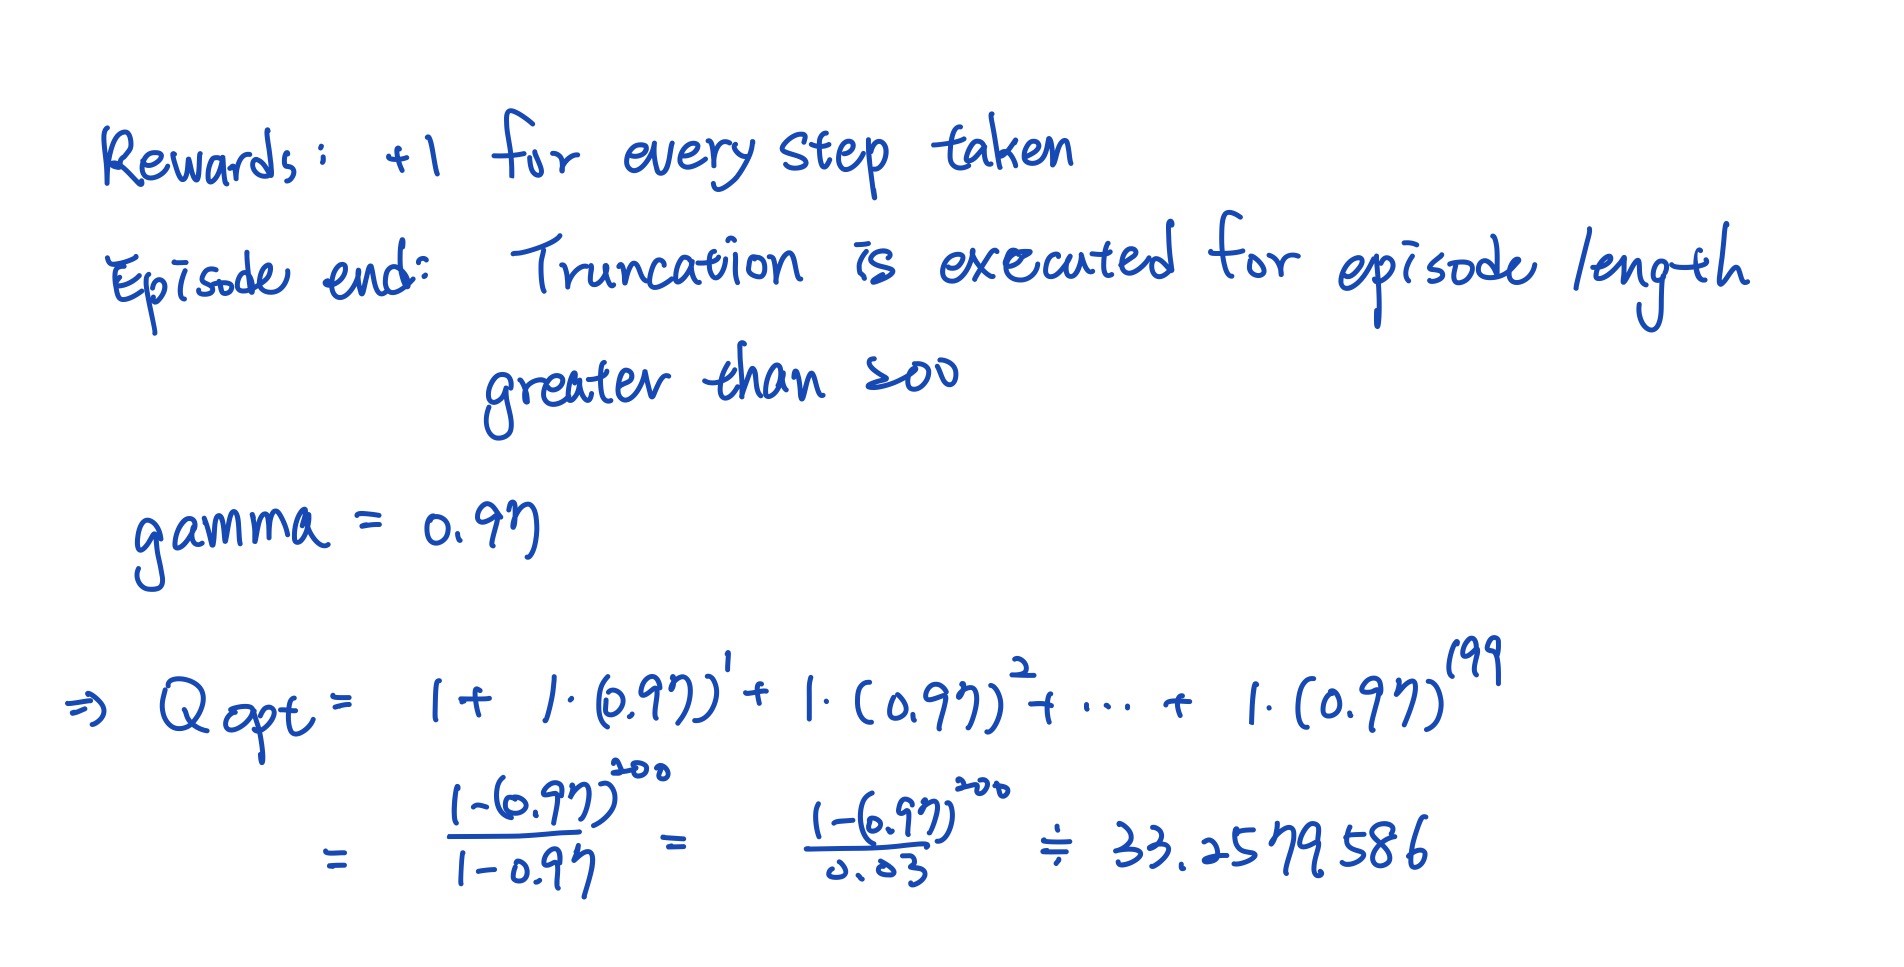 Rewards: +1 for every step taken
Episode end: Truncation is executed for episode length
greater than 500
gamma = 0.97
⇒ Qopt = 1 + 1·(0.97)^1 + 1·(0.97)^2 + ... + 1·(0.97)^199
= (1-(0.97)^200)/(1-0.97) = (1-(0.97)^200)/0.03 ≑ 33.2579586